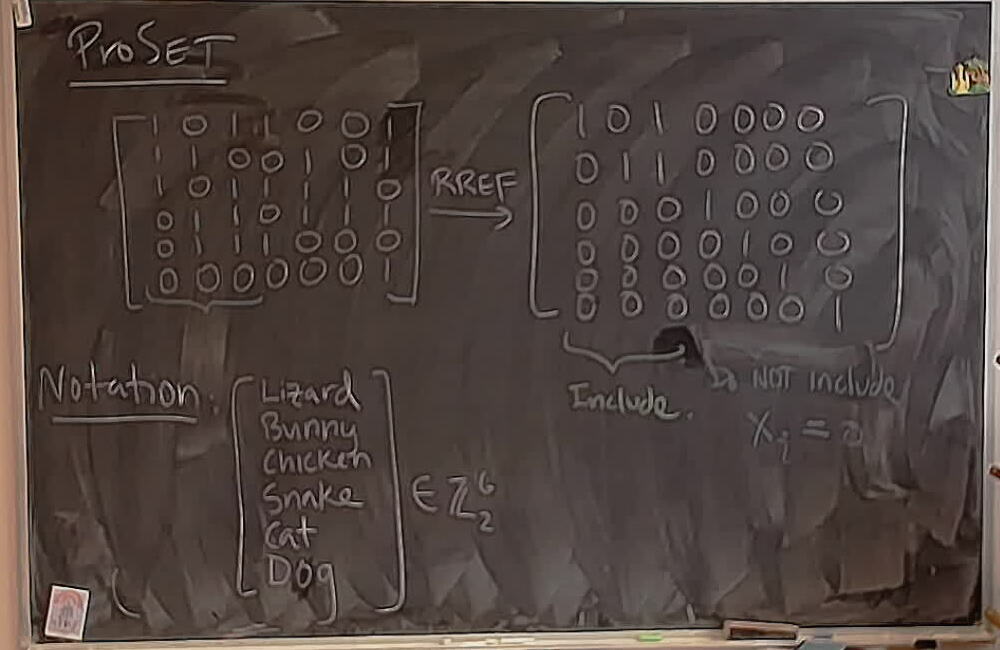 ProSET
1 0 1 1 0 0 1
1 1 0 0 1 0 1
1 0 1 1 1 1 0
0 1 1 0 1 1 1
0 1 1 1 0 0 0
0 0 0 0 0 0 1
RREF
1 0 1 0 0 0 0
0 1 1 0 0 0 0
0 0 0 1 0 0 0
0 0 0 0 1 0 0
0 0 0 0 0 1 0
0 0 0 0 0 0 1
Include.
Do NOT include
x_i = 0
Notation:
Lizard
Bunny
Chicken
Snake
Cat
Dog
∈ ℤ₂⁶